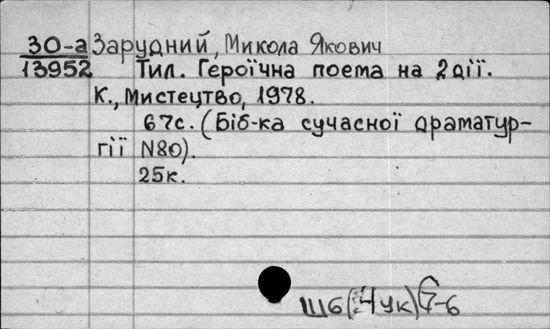 30-а Зарудний, Микола Якович
13952 Тил. Героїчна поема на 2 дії.
К., Мистецтво, 1978.
67с. (Біб-ка сучасної драматур-
гії N80).
25к.
Ш6(4Ук)